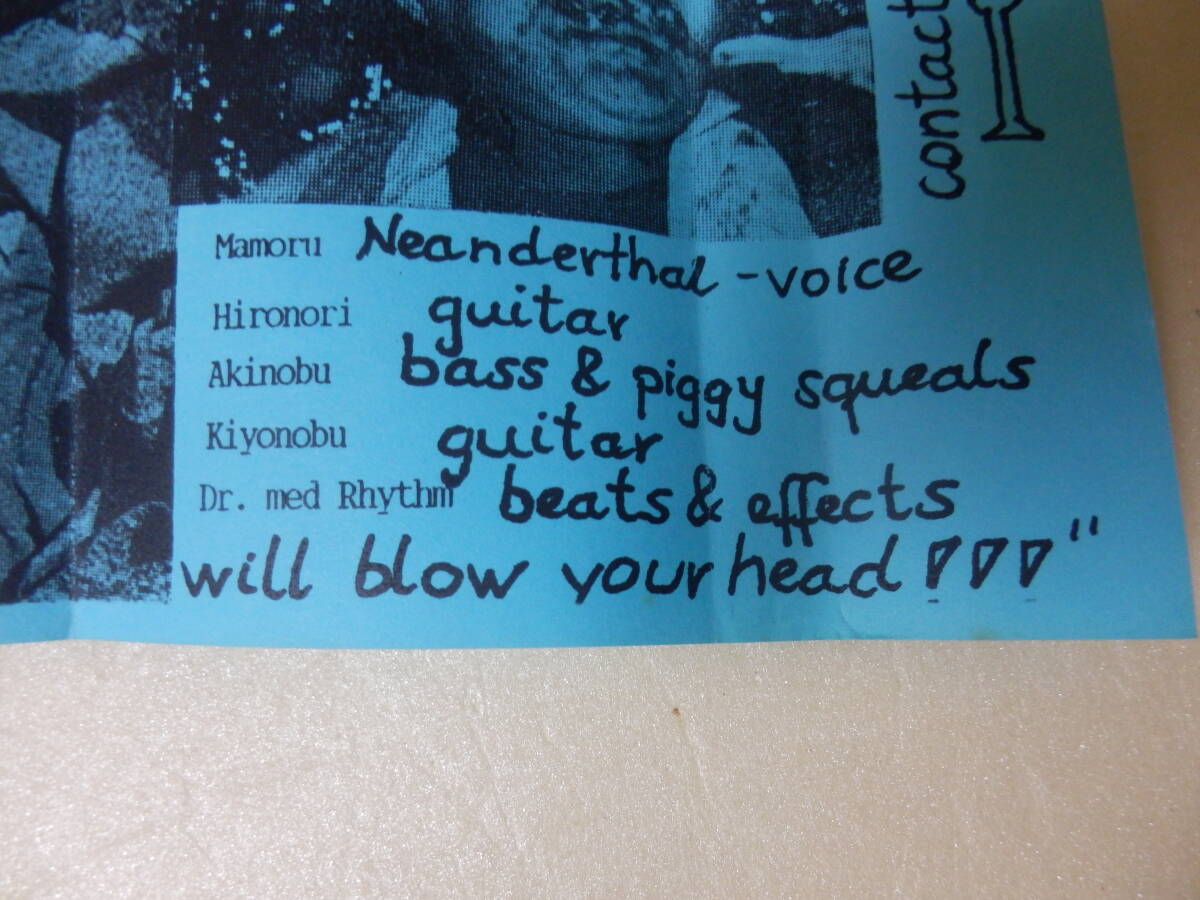 contact
Mamoru Neanderthal-voice
Hironori guitar
Akinobu bass & piggy squeals
Kiyonobu guitar
Dr. med Rhythm beats & effects
will blow your head !!!"